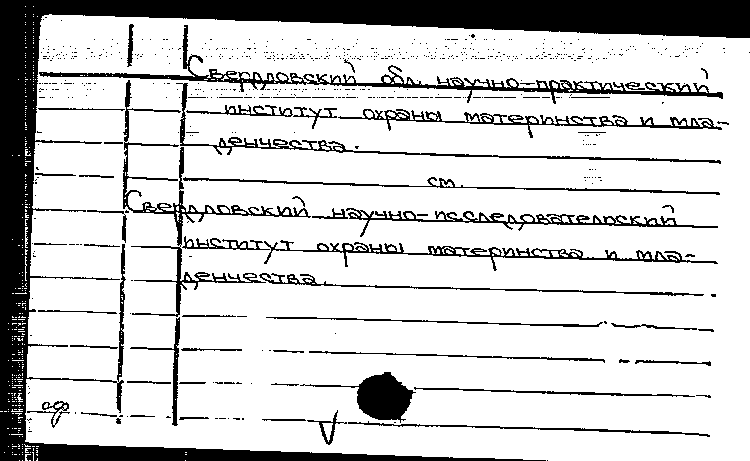 Свердловский обл. научно-практический
институт охраны материнства и мла-
денчества.
см.
Свердловский научно-исследовательский
институт охраны материнства и мла-
денчества.